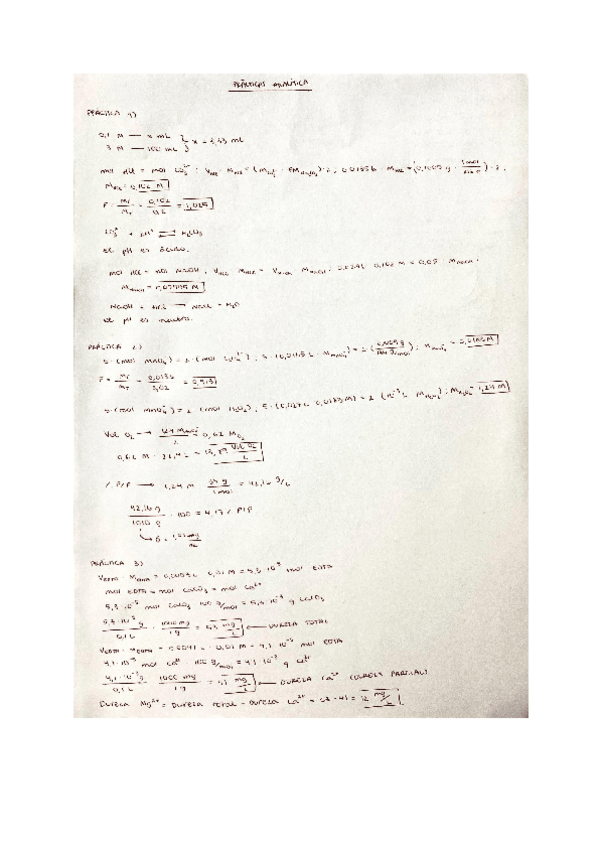 PRÁCTICAS ANALÍTICA
PRÁCTICA 1)
0,1 M — x mL } x = 3,33 mL
3 M — 100 mL
mol HCl = mol CO₃²⁻ ; V_HCl · M_HCl =
M_HCl = 0,102 M
F = Mr/M_T = 0,102 = 1,025
CO₃²⁻ + 2H⁺ ⇌ H₂CO₃
el pH es ácido.
mol HCl = mol NaOH ; V_HCl · M_HCl = V_NaOH · M_NaOH ; 0,102 M = 0,05 · M_NaOH ;
NaOH + HCl → NaCl + H₂O
el pH es neutro.
PRÁCTICA 2)
5·(mol MnO₄⁻) = 2·(mol C₂O₄²⁻) ;
F = Mr/M_T = 0,02
5·(mol MnO₄⁻) = 2 (mol H₂O₂) ; 1,24 M
Vol O₂ → = 0,62 M O₂
0,62 M · 22,4 L = Vol O₂/L
% P/P → 1,24 M · 34 g/1 mol = 42,16 g/L
42,16 g/1010 g · 100 = 4,17 % P/P
PRÁCTICA 3)
V_EDTA · M_EDTA = 0,0053 L · 0,01 M = 5,3·10⁻⁵ mol EDTA
mol EDTA = mol CaCO₃ = mol Ca²⁺
5,3·10⁻⁵ mol CaCO₃ · 100 g/mol = 5,3·10⁻³ g CaCO₃
5,3·10⁻³ g/0,1 L · 1000 mg/1 g = 53 mg/L ← DUREZA TOTAL
V_EDTA · M_EDTA = 0,0041 · 0,01 M = 4,1·10⁻⁵ mol EDTA
4,1·10⁻⁵ mol Ca²⁺ · 100 g/mol = 4,1·10⁻³ g Ca²⁺
4,1·10⁻³ g/0,1 L · 1000 mg/1 g = 41 mg/L ← DUREZA Ca²⁺ (DUREZA PARCIAL)
DUREZA Mg²⁺ = DUREZA TOTAL - DUREZA Ca²⁺ = 53 - 41 = 12 mg/L